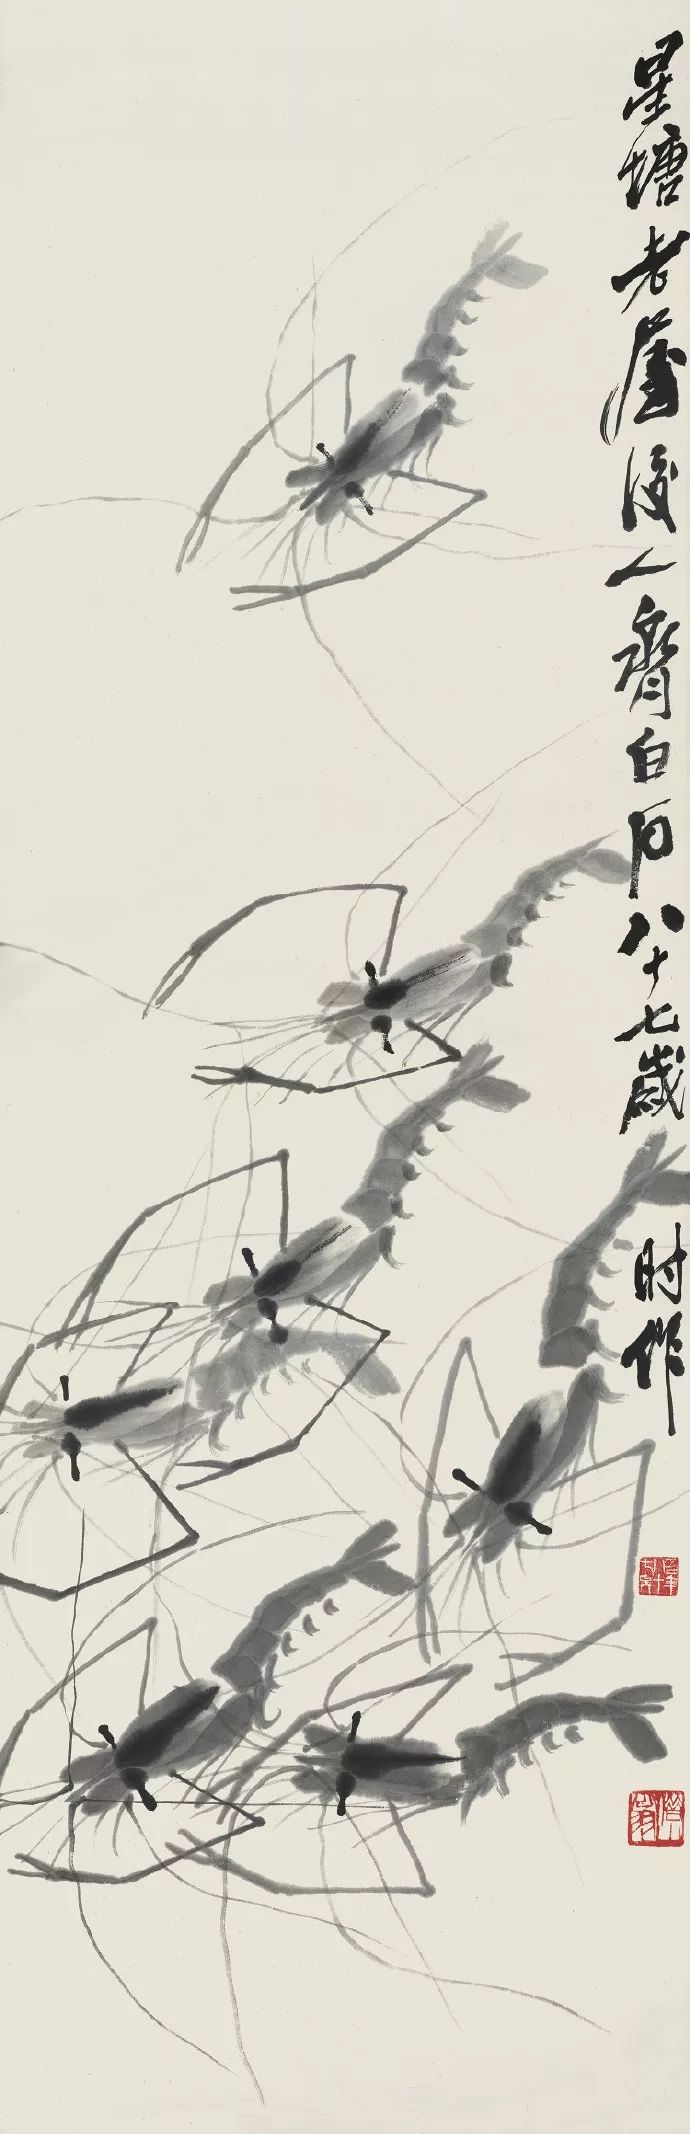 星塘老屋後人齊白石八十七歲时作